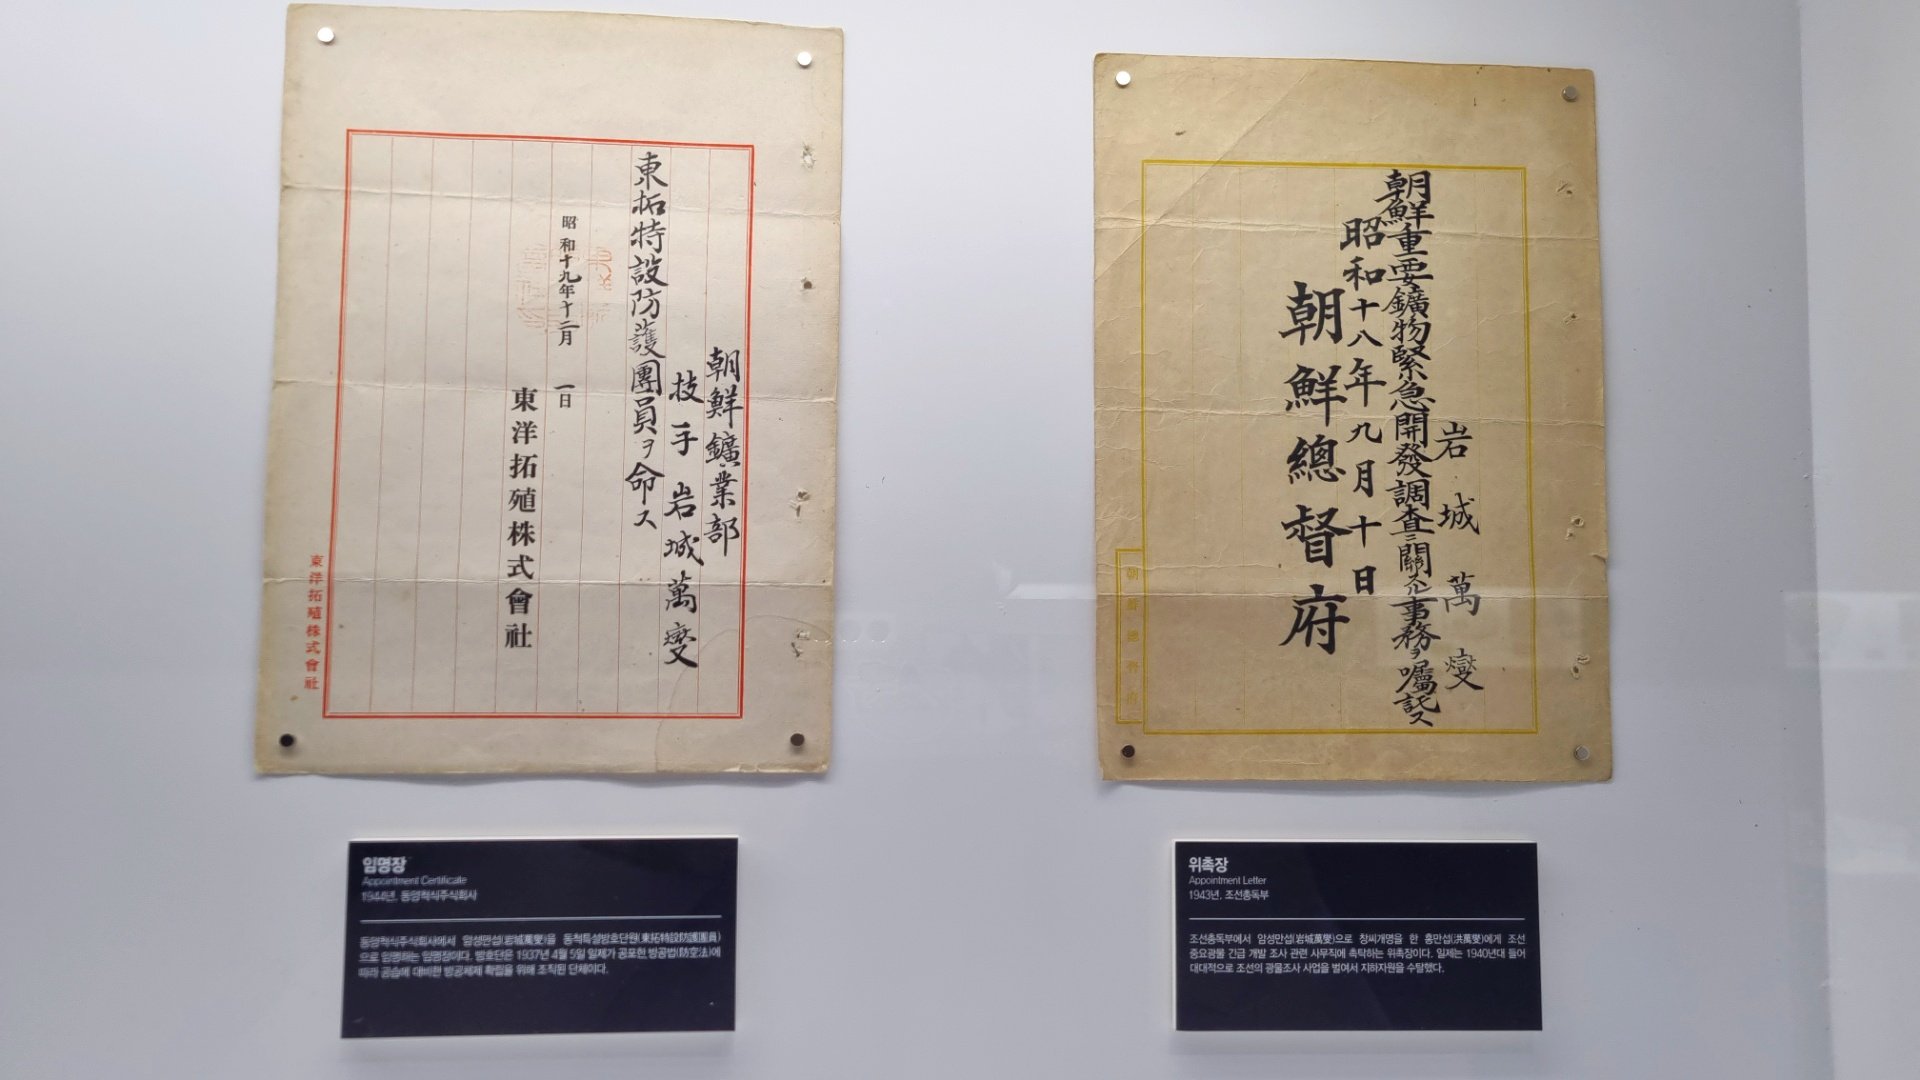 朝鮮鑛業部
技手 岩城萬燮
東拓特設防護團員ヲ命ス
昭和十九年十二月 一日
東洋拓殖株式會社
東洋拓殖株式會社
임명장
Appointment Certificate
1944년, 동양척식주식회사
동양척식주식회사에서 암성만섭(岩城萬燮)을 동척특설방호단원(東拓特設防護團員)
으로 임명하는 임명장이다. 방호단은 1937년 4월 5일 일제가 공포한 방공법(防空法)에
따라 공습에 대비한 방공체제 확립을 위해 조직된 단체이다.
岩城萬燮
朝鮮重要鑛物緊急開發調査ニ關スル事務ヲ囑託ス
昭和十八年九月十日
朝鮮總督府
朝鮮總督府
위촉장
Appointment Letter
1943년, 조선총독부
조선총독부에서 암성만섭(岩城萬燮)으로 창씨개명을 한 홍만섭(洪萬燮)에게 조선
중요광물 긴급 개발 조사 관련 사무직에 촉탁하는 위촉장이다. 일제는 1940년대 들어
대대적으로 조선의 광물조사 사업을 벌여서 지하자원을 수탈했다.